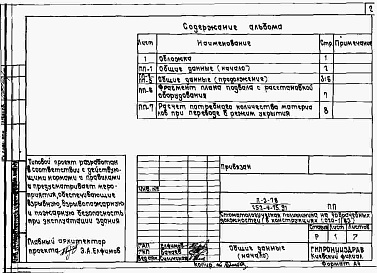 2
Содержание альбома
Лист Наименование Стр. Примечание
1 Обложка 1
ПП-1 Общие данные (начало) 2
Общие данные (продолжение) 3÷6
ПП-6 Фрагмент плана подвала с расстановкой
оборудования 7
ПП-7 Расчет потребного количества материа
лов при переводе в режим укрытия 8
Типовой проект разработан
в соответствии с действую-
щими нормами и правилами
и предусматривает меро-
приятия, обеспечивающие
взрывную, взрывопожарную
и пожарную безопасность
при эксплуатации здания
Главный архитектор
проекта З.А. Елфимов
Привязан
Инв. №
ПП
Стоматологическая поликлиника на
в конструкциях
Стадия Лист Листов
Р 1 7
Общие данные
(начало)
ГИПРОНИИЗДРАВ
Киевский филиал
Копир.
Формат А4